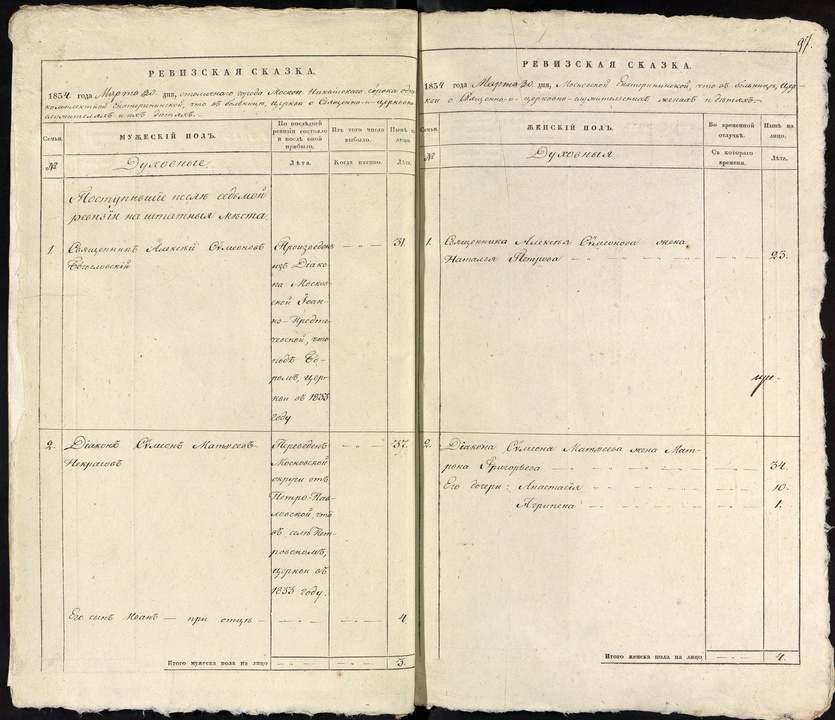 97.
РЕВИЗСКАЯ СКАЗКА.
1834 года Марта 20 дня, столичнаго города Москвы Никитскаго сорока
Екатерининской, что въ больницѣ, Церкви о Священно-и-церковно-
служителяхъ и ихъ дѣтяхъ.
Семьи.
МУЖЕСКІЙ ПОЛЪ.
По послѣдней
ревизіи состояло
и послѣ оной
прибыло.
Изъ того числа
выбыло.
Нынѣ на
лицо.
№
Духовные.
Лѣта.
Когда именно.
Лѣта.
Поступившіе послѣ седьмой
ревизіи на штатныя мѣста.
1. Священникъ Алексѣй Сѵмеоновъ
Богословскій
Произведенъ
изъ Діако-
на Москов-
ской Іоан-
но-Предте-
чевской, что
подъ Бо-
ромъ, цер-
кви въ 1833
году
31
2. Діаконъ Сѵмеонъ Матѳеевъ
Некрасовъ
Переведенъ
Московской
округи отъ
Петро-Пав-
ловской, что
въ селѣ Пет-
ровскомъ,
церкви въ
1833 году.
37.
Его сынъ Иванъ — при отцѣ —
4
Итого мужеска пола на лицо
3.
РЕВИЗСКАЯ СКАЗКА.
1834 года Марта 20 дня, Московской Екатерининской, что въ больницѣ, Цер-
кви о Священно-и-церковно-служительскихъ женахъ и дѣтяхъ.
Семьи.
ЖЕНСКІЙ ПОЛЪ.
Во временной
отлучкѣ.
Нынѣ на
лицо.
№
Духовныя
Съ котораго
времени.
Лѣта.
1. Священника Алексѣя Сѵмеонова жена
Наталья Петрова
23.
2. Діакона Сѵмеона Матѳеева жена Мат-
рона Григорьева
34.
Его дочери: Анастасія
10.
Агрипена
1.
Итого женска пола на лицо
4.